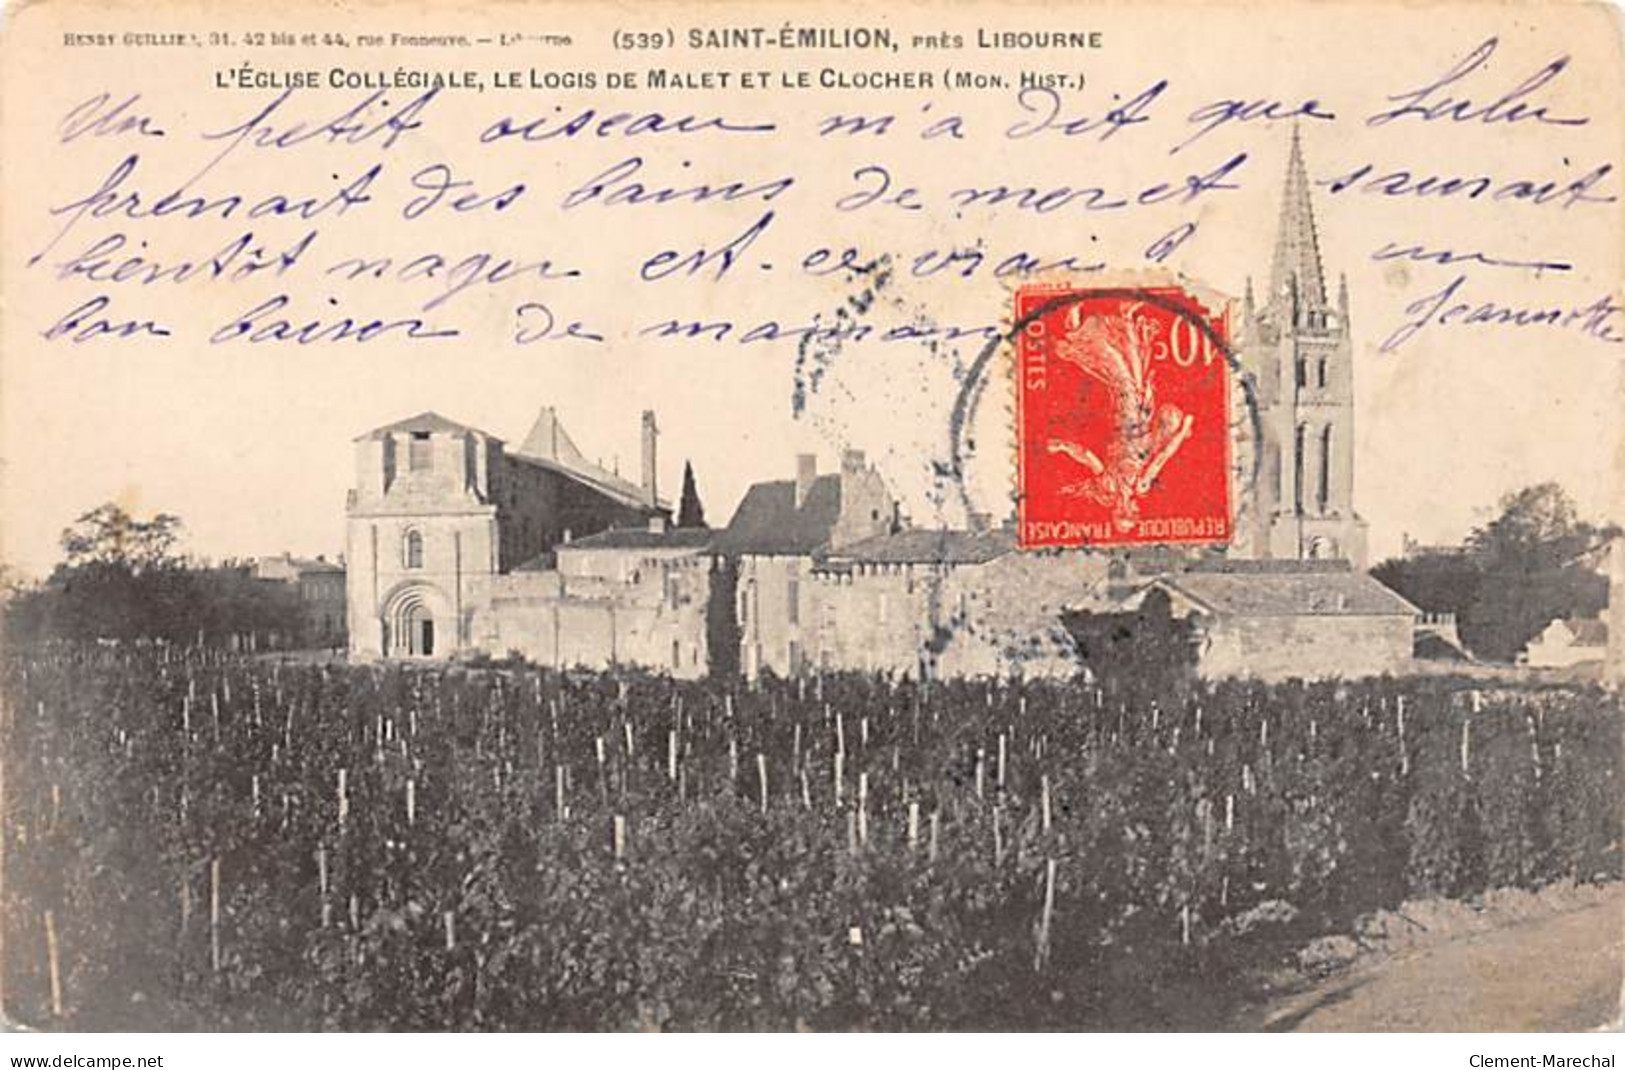 HENRY GUILLIER, 31, 42 bis et 44, rue Fonneuve. — Libourne (539) SAINT-ÉMILION, PRÈS LIBOURNE
L'ÉGLISE COLLÉGIALE, LE LOGIS DE MALET ET LE CLOCHER (MON. HIST.)
Un petit oiseau m'a dit que Lulu
prenait des bains de mer et saurait
bientôt nager est-ce vrai ? un
bon baiser de maman Jeannotte
10c
POSTES
RÉPUBLIQUE FRANÇAISE
www.delcampe.net Clement-Marechal